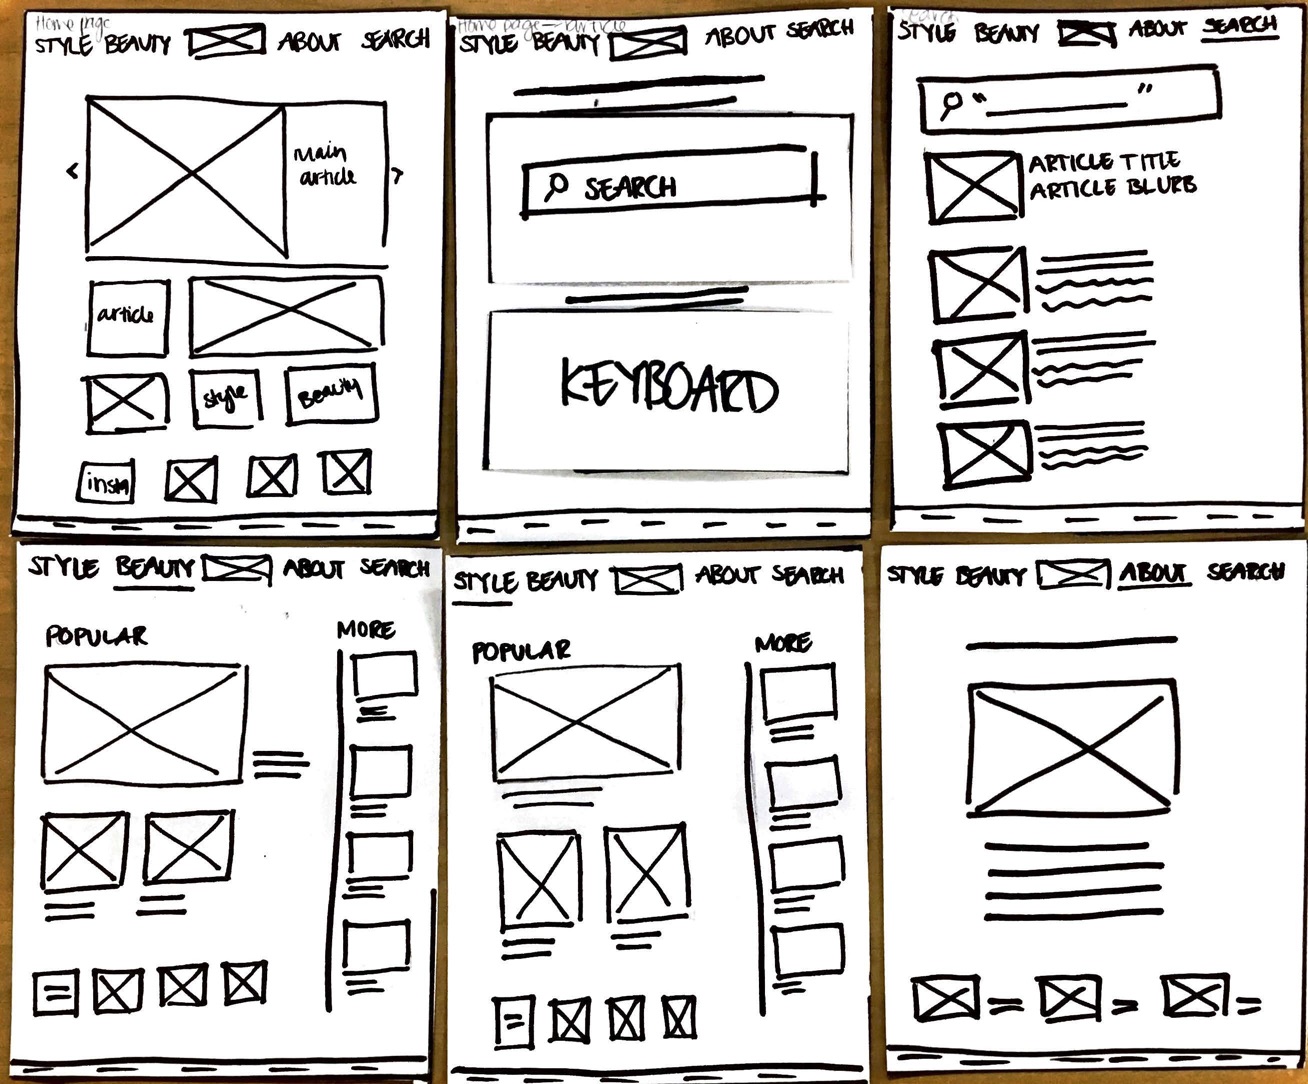 Home page
STYLE BEAUTY ABOUT SEARCH
Main
article
article
style
Beauty
insta
Home page - article
STYLE BEAUTY ABOUT SEARCH
SEARCH
KEYBOARD
Search
STYLE BEAUTY ABOUT SEARCH
“ ”
ARTICLE TITLE
ARTICLE BLURB
STYLE BEAUTY ABOUT SEARCH
POPULAR
MORE
STYLE BEAUTY ABOUT SEARCH
POPULAR
MORE
STYLE BEAUTY ABOUT SEARCH